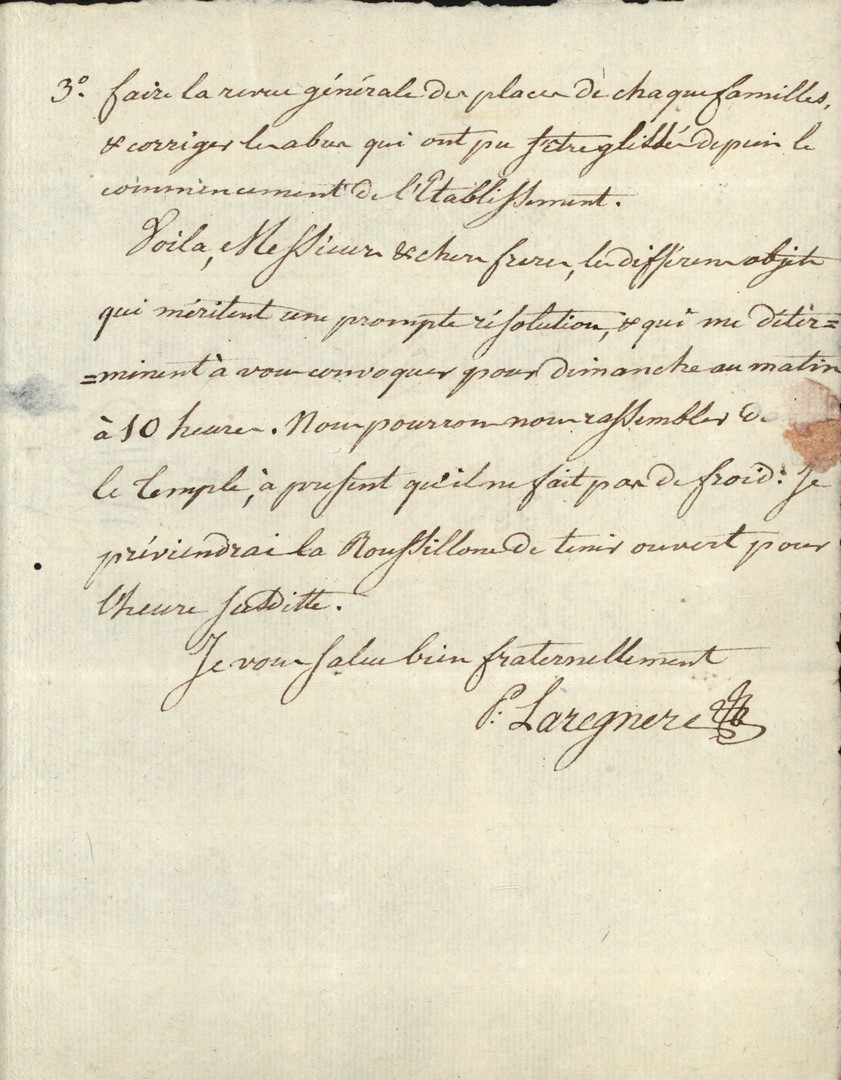 3.º faire la revue générale des places de chaque familles,
& corriger les abus qui ont pu s'être glissés depuis le
commencement de l'Etablissement.
Voila, Messieurs & chers freres, les différens objets
qui méritent une prompte résolution, & qui me déter=
=minent à vous convoquer pour dimanche au matin
à 10 heures. Nous pourrons nous rassembler d
le Temple, à present qu'il ne fait pas de froid: Je
préviendrai la Roussillone de tenir ouvert pour
l'heure susditte.
Je vous salue bien fraternellement
P: Laregnere